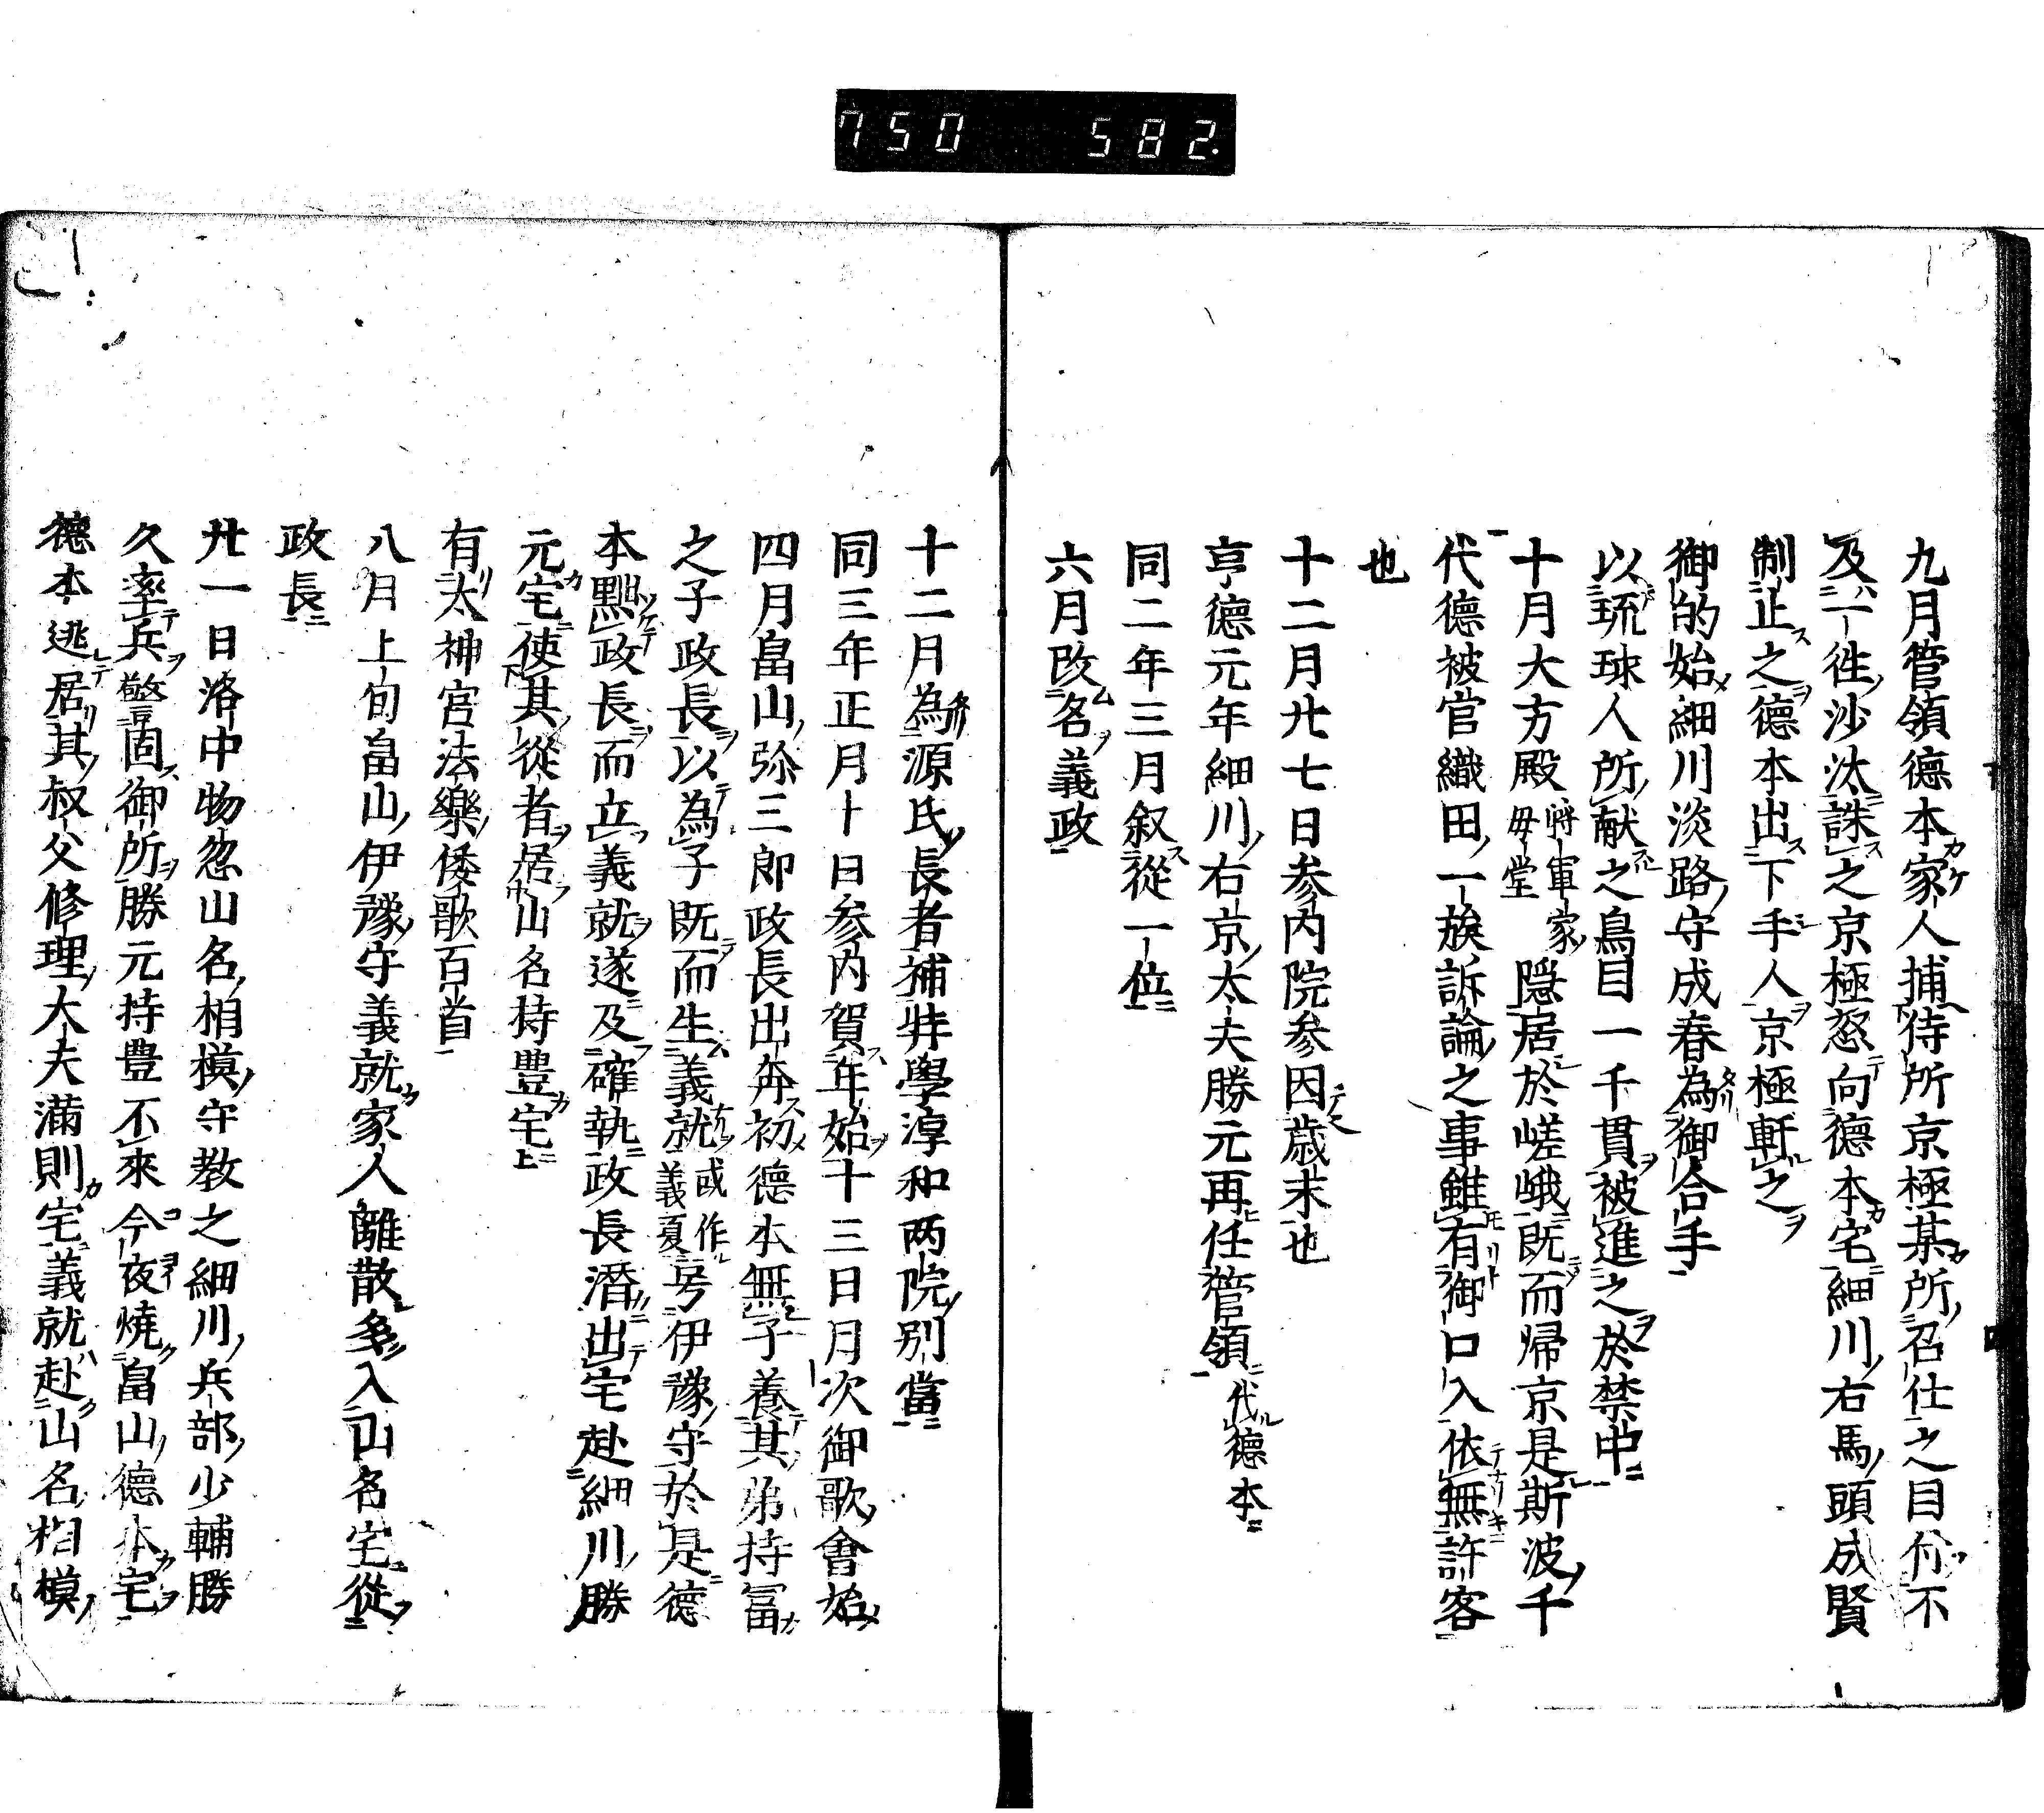 750 582
九月管領德本家人捕侍所京極某所召仕之目付不
及一往沙汰誅之京極怒向德本宅細川右馬頭成賢
制止之德本出下手人京極軒之
御的始細川淡路守成春為御合手
以琉球人所献之鳥目一千貫被進之於禁中
十月大方殿將軍家母堂隠居於嵯峨既而帰京是斯波千
代德被官織田一族訴論之事雖有御口入依無許客
也
十二月廿七日参内院参因歳末也
亨德元年細川右京太夫勝元再任管領代德本
同二年三月叙從一位
六月改名義政
十二月為源氏長者補弉學淳和两院别當
同三年正月十日参内賀年始十三日月次御歌會始
四月畠山弥三郎政長出奔初德本無子養其弟持冨
之子政長以為子既而生義就或作義夏号伊豫守於是德
本黜政長而立義就遂及確執政長潛出宅赴細川勝
元宅使其從者居山名持豊宅
有太神宮法樂倭歌百首
八月上旬畠山伊豫守義就家人離散多入山名宅從
政長
廿一日洛中物忩山名相模守教之細川兵部少輔勝
久率兵警固御所勝元持豊不來今夜燒畠山德本宅
德本逃居其叔父修理大夫滿則宅義就赴山名相模